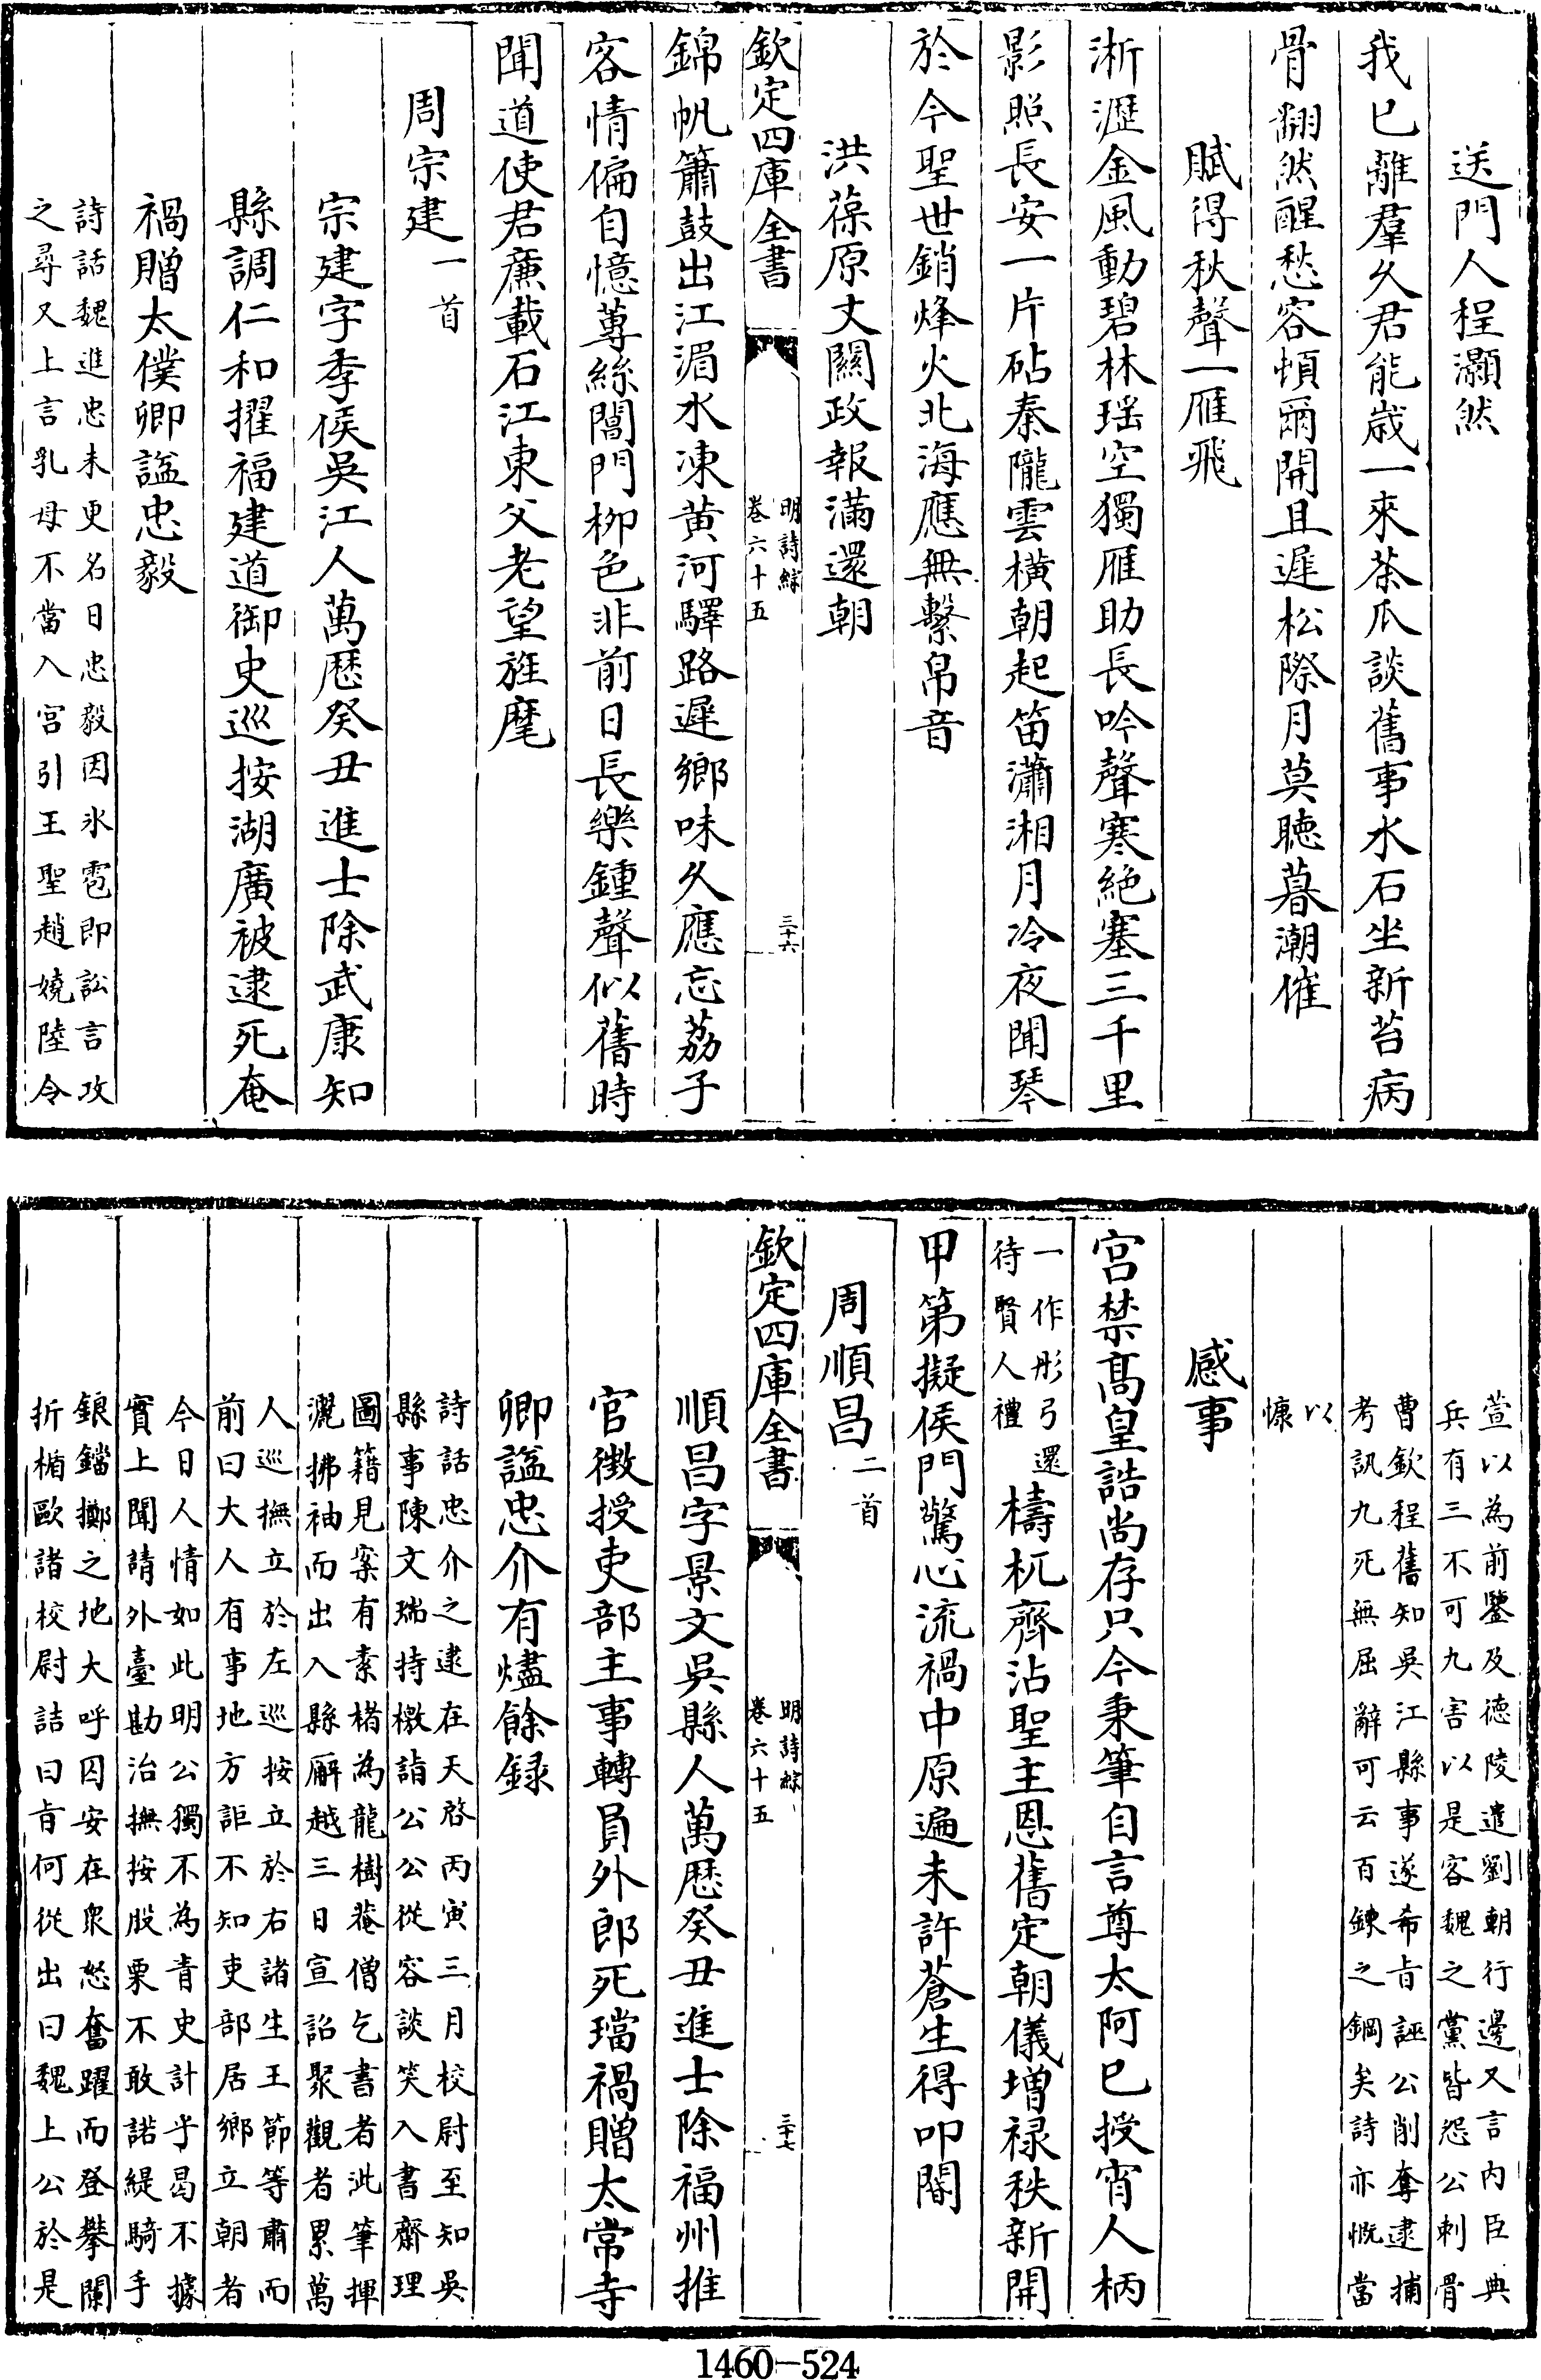 送門人程灝然
我已離羣久君能歳一來茶瓜談舊事水石坐新苔病
骨翻然醒愁容頓爾開且遲松際月莫聴暮潮催
賦得秋聲一雁飛
淅瀝金風動碧林瑶空獨雁助長吟聲寒絶塞三千里
影照長安一片砧秦隴雲橫朝起笛瀟湘月冷夜聞琴
於今聖世銷烽火北海應無繫帛音
洪葆原丈闗政報滿還朝
欽定四庫全書
明詩綜
卷六十五
三十六
錦帆簫鼓出江湄水凍黄河驛路遲鄉味久應忘荔子
客情偏自憶蓴絲閶門栁色非前日長樂鍾聲似舊時
聞道使君亷載石江東父老望旌麾
周宗建一首
宗建字季侯吳江人萬厯癸丑進士除武康知
縣調仁和擢福建道御史巡按湖廣被逮死奄
禍贈太僕卿諡忠毅
詩話魏進忠未更名日忠毅因氷雹即訟言攻
之尋又上言乳母不當入宫引王聖趙嬈陸令
萱以為前鑒及德陵遣劉朝行邊又言内臣典
兵有三不可九害以是客魏之黨皆怨公刺骨
曹欽程舊知吳江縣事遂希㫖誣公削奪逮捕
考訊九死無屈辭可云百鍊之鋼矣詩亦慨當
以
慷
感事
宫禁髙皇誥尚存只今秉筆自言尊太阿已授宵人柄
一作彤弓還
待賢人禮
檮杌齊沾聖主恩舊定朝儀増禄秩新開
甲第擬侯門驚心流禍中原遍未許蒼生得叩閽
周順昌二首
欽定四庫全書
明詩綜
卷六十五
三十七
順昌字景文吳縣人萬厯癸丑進士除福州推
官徴授吏部主事轉員外郎死璫禍贈太常寺
卿諡忠介有燼餘録
詩話忠介之逮在天啓丙寅三月校尉至知吳
縣事陳文瑞持檄詣公公從容談笑入書齋理
圖籍見案有素楮為龍樹菴僧乞書者泚筆揮
灑拂袖而出入縣廨越三日宣詔聚觀者累萬
人巡撫立於左巡按立於右諸生王節等肅而
前曰大人有事地方詎不知吏部居鄉立朝者
今日人情如此明公獨不為青史計乎曷不據
實上聞請外臺勘治撫按股栗不敢諾緹騎手
鋃鐺擲之地大呼囚安在衆怒奮躍而登攀闌
折楯歐諸校尉詰曰㫖何從出曰魏上公於是
1460-524